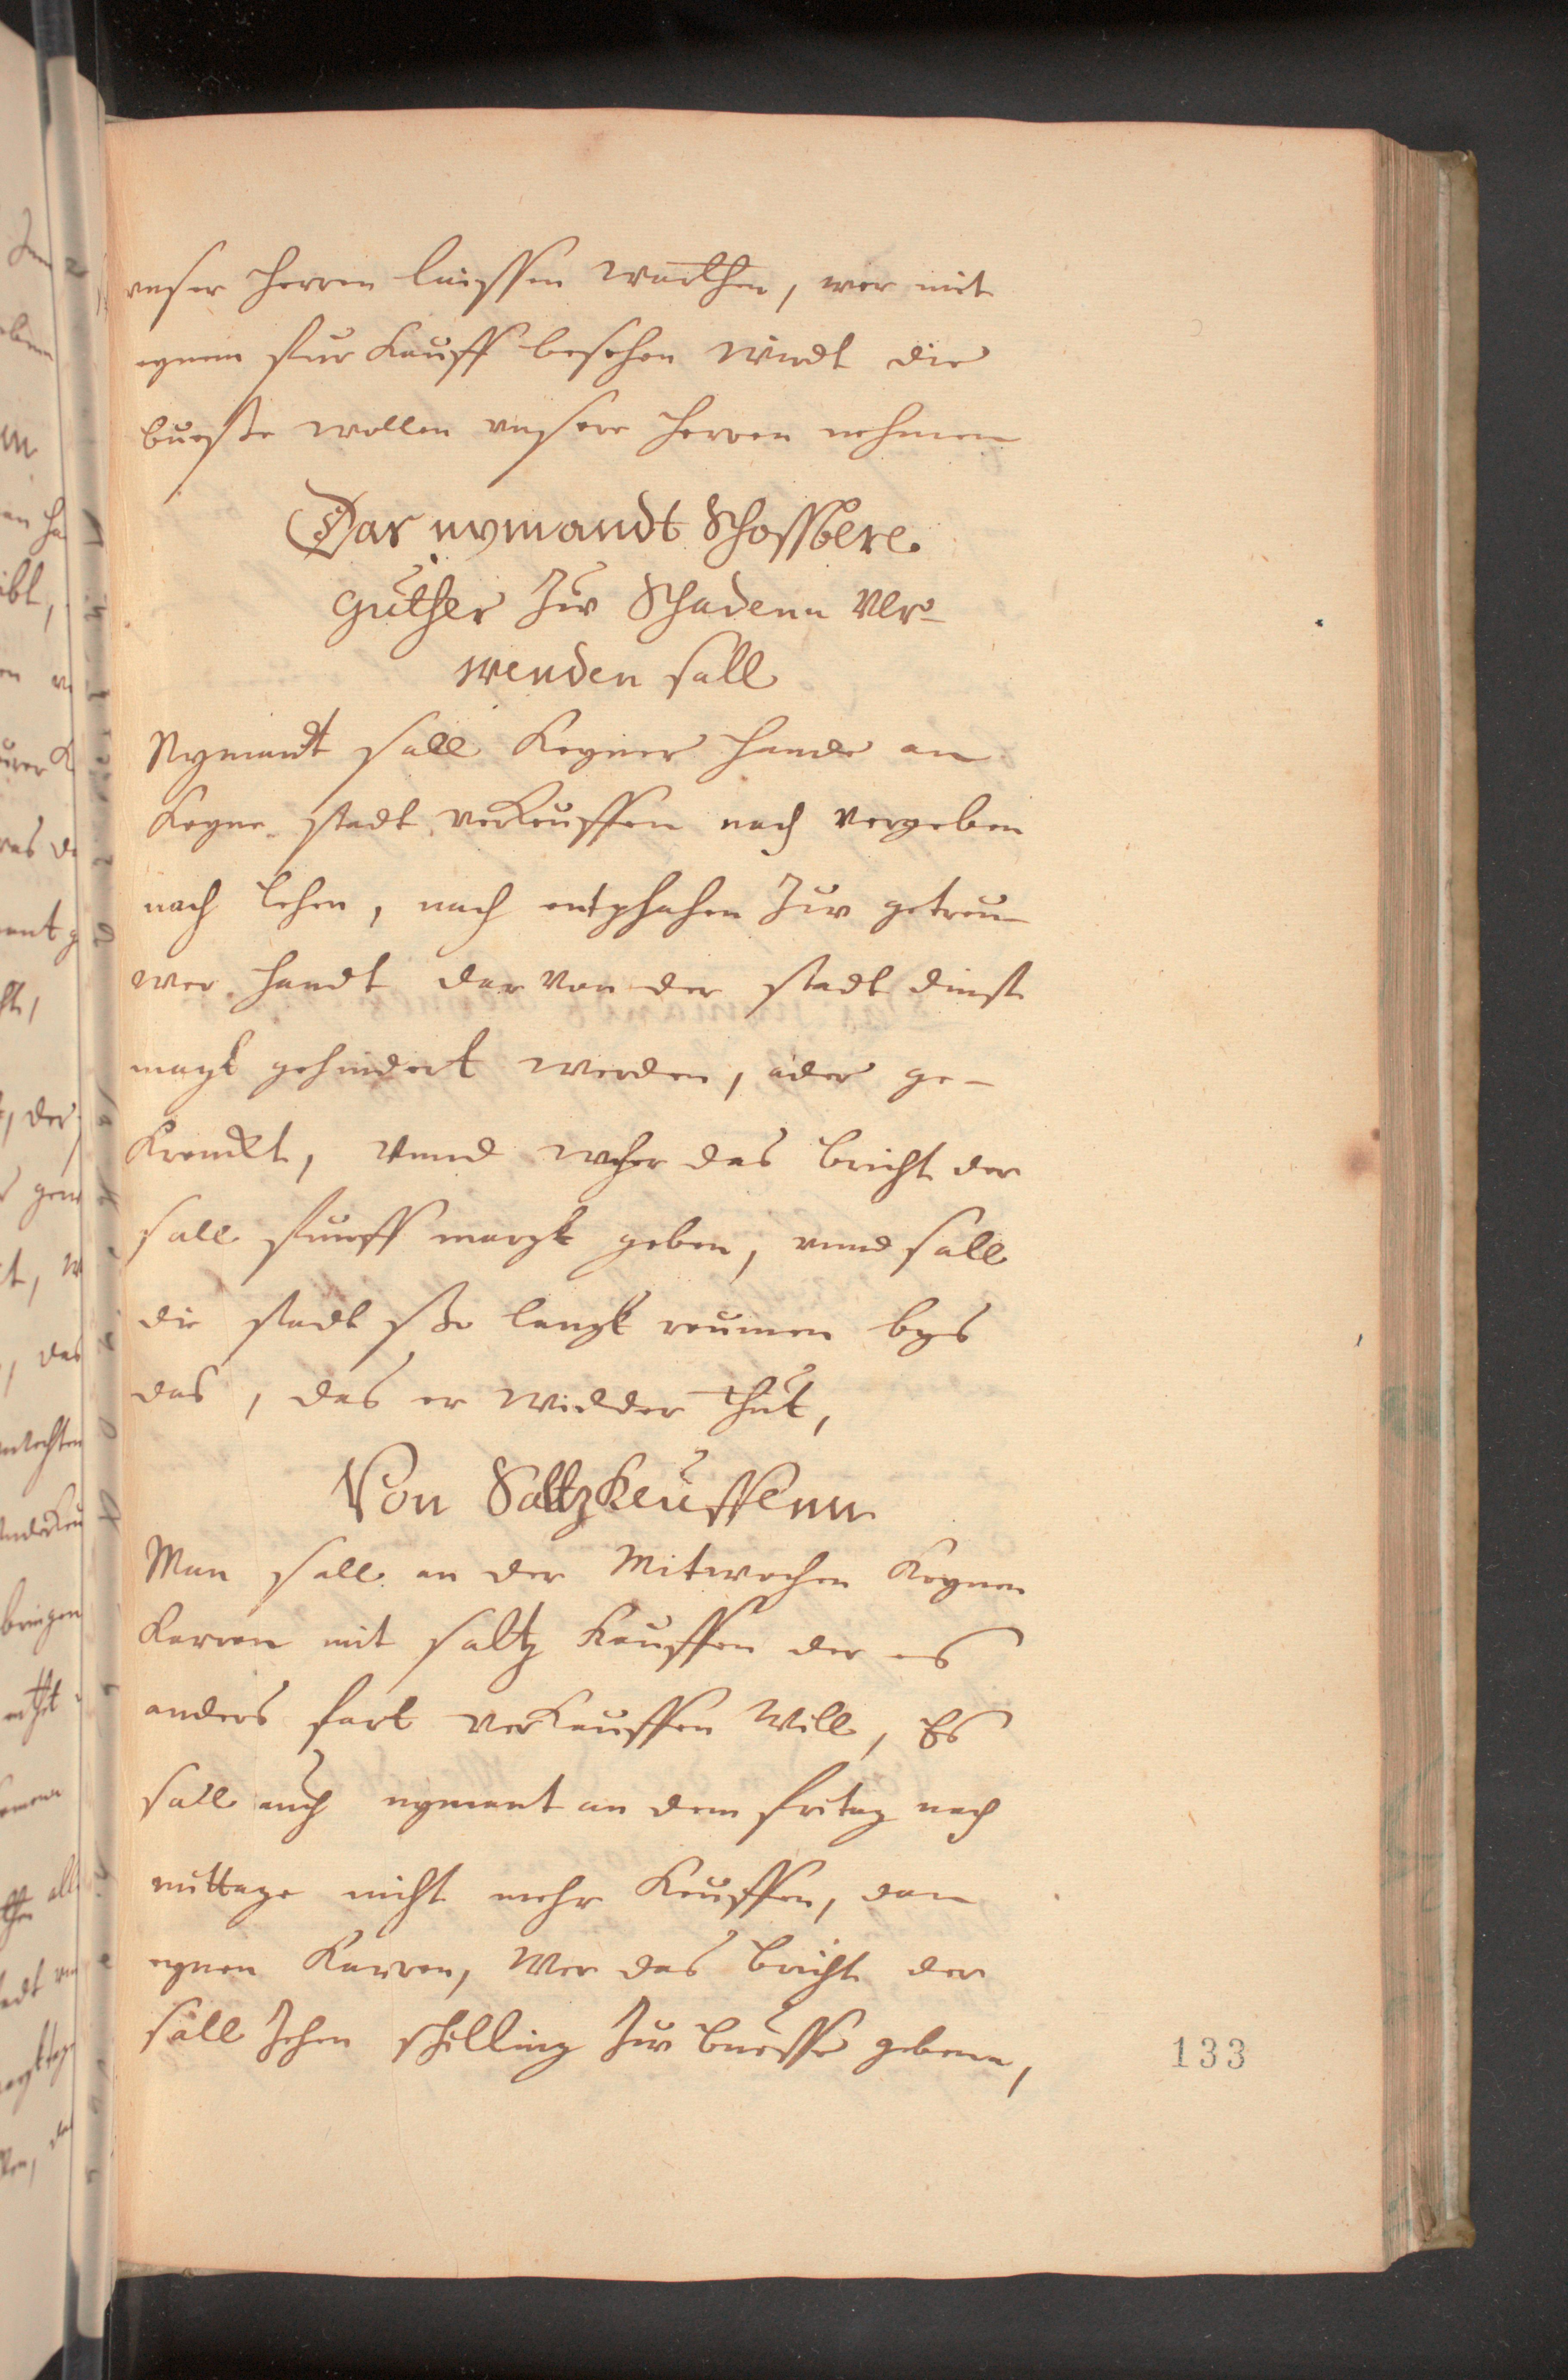 vnser herren laissen warthen, wer mit
eynem fur kauff besehen wirdt die
buesse wollen vnsere herren nehmen
Das nymandt Schossbere
guther Zur Schadenn Ver-
wenden sall
Nymandt sall keyner hande an
keyne stadt verkeuffen noch vergeben
noch lehen, noch entphahen Zur getreu-
wer handt dar von der stadt dinst
magk gehindert werden, ader ge-
krenckt, Vnnd wher das bricht der
sall funff margk geben, vnnd sall
die stadt sso langk reumen bys
das, das er widder thut,
Von Saltzkeuffenn
Man sall an der Mitwochen keynen
karren mit saltz keuffen der es
anders fort verkeuffen will, Es
sall auch nymant an dem fritag nach
mittage nicht mehr keuffen, dan
eynen karren, Wer das bricht der
sall Zehen schilling Zur buesse gebenn,
133